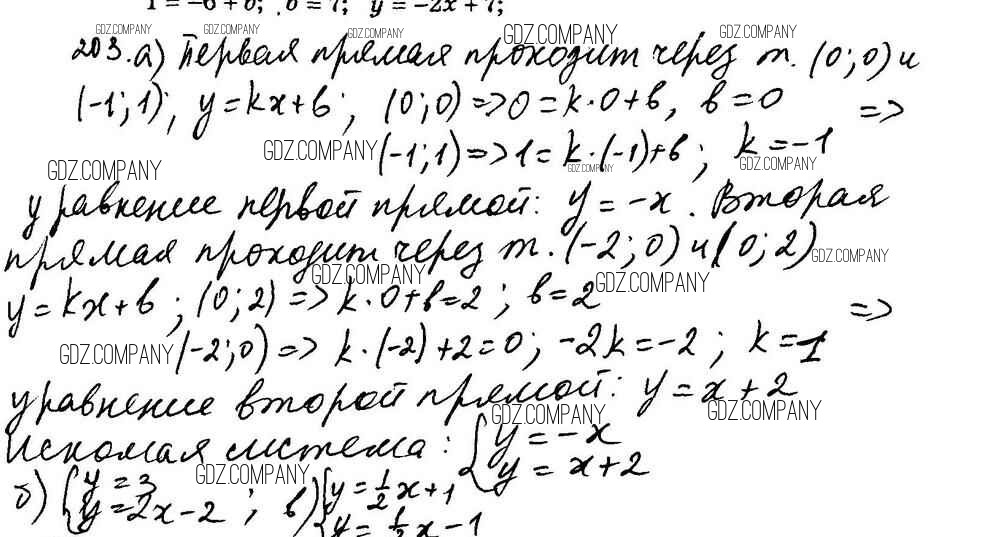 1 = −6 + b; b = 7; y = −2x + 7;
GDZ.COMPANY GDZ.COMPANY GDZ.COMPANY GDZ.COMPANY GDZ.COMPANY
203. а) Первая прямая проходит через т. (0; 0) и
(-1; 1); y = kx + b; (0; 0) => 0 = k·0 + b, b = 0 =>
GDZ.COMPANY GDZ.COMPANY (-1; 1) => 1 = k·(-1) + b; k = -1
GDZ.COMPANY GDZ.COMPANY
уравнение первой прямой: y = -x. Вторая
прямая проходит через т. (-2; 0) и (0; 2) GDZ.COMPANY
GDZ.COMPANY GDZ.COMPANY
y = kx + b; (0; 2) => k·0 + b = 2; b = 2 =>
GDZ.COMPANY (-2; 0) => k·(-2) + 2 = 0; -2k = -2; k = 1
уравнение второй прямой: y = x + 2
GDZ.COMPANY GDZ.COMPANY
Искомая система: { y = -x
y = x + 2
GDZ.COMPANY
б) { y = 3
y = 2x - 2 ; в) { y = 1/2 x + 1
y = 1/2 x - 1